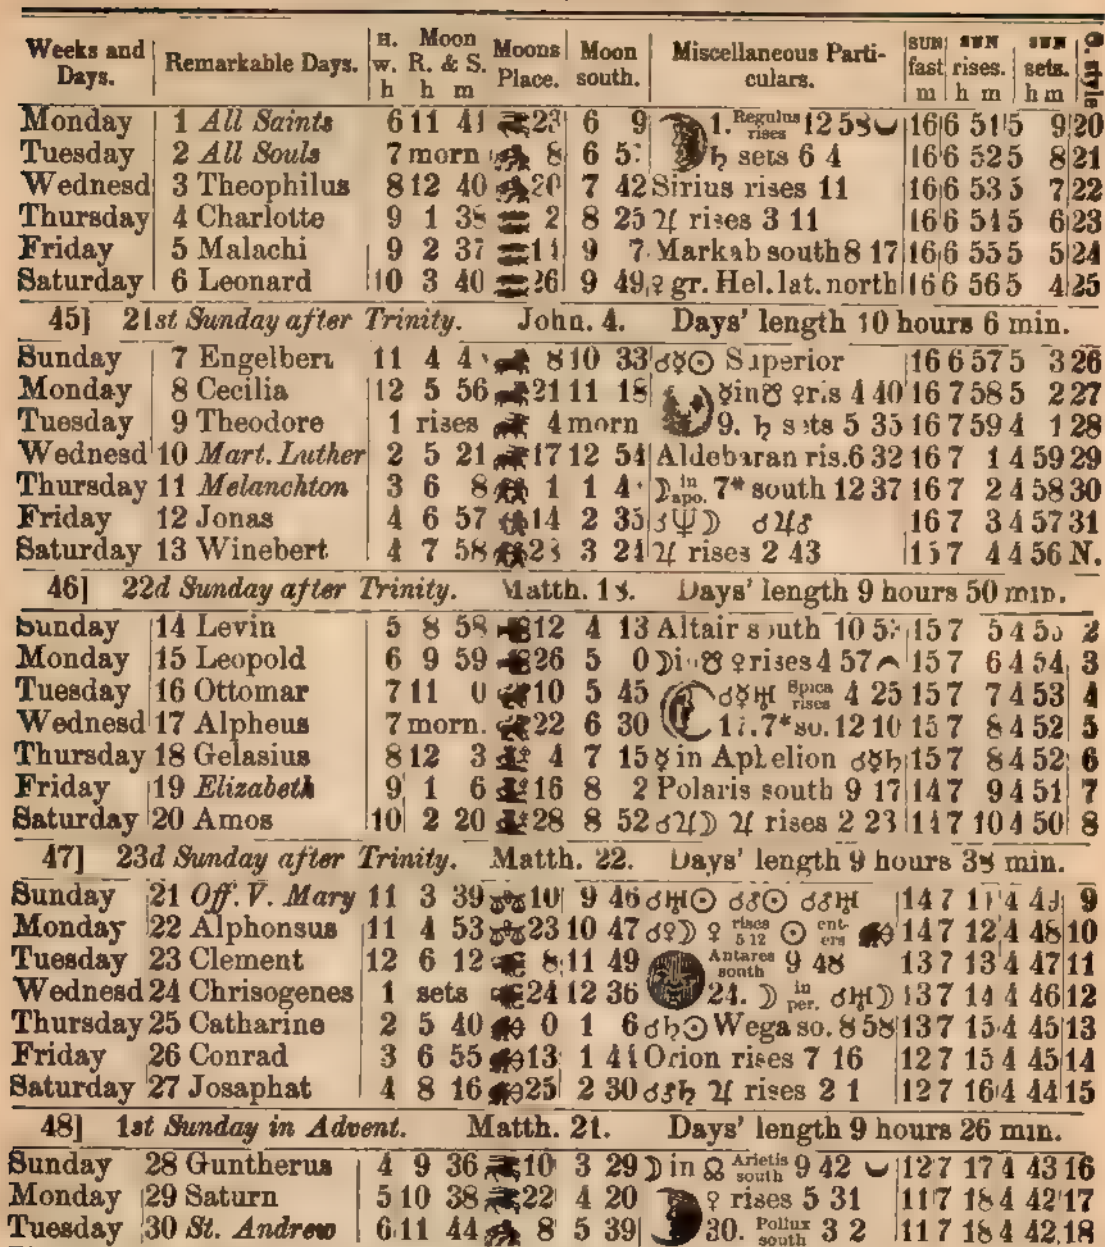 Weeks and Days. Remarkable Days. H. w. h Moon R. & S. h m Moons Place. Moon south. Miscellaneous Particulars. SUN fast m SUN rises. h m SUN sets. h m O. style
Monday 1 All Saints 6 11 41 23 6 9 1. Regulus rises 12 58 ⌣ 16 6 51 5 9 20
Tuesday 2 All Souls 7 morn 8 6 ♄ sets 6 4 16 6 52 5 8 21
Wednesd 3 Theophilus 8 12 40 20 7 42 Sirius rises 11 16 6 53 5 7 22
Thursday 4 Charlotte 9 1 38 2 8 25 ♃ rises 3 11 16 6 54 5 6 23
Friday 5 Malachi 9 2 37 14 9 7 Markab south 8 17 16 6 55 5 5 24
Saturday 6 Leonard 10 3 40 26 9 49 ♀ gr. Hel. lat. north 16 6 56 5 4 25
45] 21st Sunday after Trinity. John. 4. Days' length 10 hours 6 min.
Sunday 7 Engelbert 11 4 8 10 33 ☌☿☉ Superior 16 6 57 5 3 26
Monday 8 Cecilia 12 5 56 21 11 18 ☿ in ☋ ♀ ris 4 40 16 7 58 5 2 27
Tuesday 9 Theodore 1 rises 4 morn 9. ♄ sets 5 35 16 7 59 4 1 28
Wednesd 10 Mart. Luther 2 5 21 17 12 54 Aldebaran ris. 6 32 16 7 1 4 59 29
Thursday 11 Melanchton 3 6 8 1 1 ☽ in apo. 7* south 12 37 16 7 2 4 58 30
Friday 12 Jonas 4 6 57 14 2 35 ☌♆☽ ☌♃♂ 16 7 3 4 57 31
Saturday 13 Winebert 4 7 58 3 21 ♃ rises 2 43 15 7 4 4 56 N.
46] 22d Sunday after Trinity. Matth. 18. Days' length 9 hours 50 min.
Sunday 14 Levin 5 8 58 12 4 13 Altair south 10 15 7 5 4 55 2
Monday 15 Leopold 6 9 59 26 5 0 ☽ in ☋ ♀ rises 4 57 ⌢ 15 7 6 4 54 3
Tuesday 16 Ottomar 7 11 0 10 5 45 ☌☿♅ Spica rises 4 25 15 7 7 4 53 4
Wednesd 17 Alpheus 7 morn. 22 6 30 17. 7* so. 12 10 15 7 8 4 52 5
Thursday 18 Gelasius 8 12 3 4 7 15 ☿ in Aphelion ☌☿♄ 15 7 8 4 52 6
Friday 19 Elizabeth 9 1 6 16 8 2 Polaris south 9 17 14 7 9 4 51 7
Saturday 20 Amos 10 2 20 28 8 52 ☌♃☽ ♃ rises 2 23 14 7 10 4 50 8
47] 23d Sunday after Trinity. Matth. 22. Days' length 9 hours 38 min.
Sunday 21 Off. V. Mary 11 3 39 10 9 46 ☌♅☉ ☌♂☉ ☌♂♅ 14 7 11 4 49 9
Monday 22 Alphonsus 11 4 53 23 10 47 ☌♀☽ ♀ rises 5 12 ☉ enters 14 7 12 4 48 10
Tuesday 23 Clement 12 6 12 8 11 49 Antares south 9 48 13 7 13 4 47 11
Wednesd 24 Chrisogenes 1 sets 24 12 36 24. ☽ in per. ☌♅☽ 13 7 14 4 46 12
Thursday 25 Catharine 2 5 40 0 1 6 ☌♄☉ Wega so. 8 58 13 7 15 4 45 13
Friday 26 Conrad 3 6 55 13 1 41 Orion rises 7 16 12 7 15 4 45 14
Saturday 27 Josaphat 4 8 16 25 2 30 ☌♂♄ ♃ rises 2 1 12 7 16 4 44 15
48] 1st Sunday in Advent. Matth. 21. Days' length 9 hours 26 min.
Sunday 28 Guntherus 4 9 36 10 3 29 ☽ in ☊ Arietis south 9 42 ⌣ 12 7 17 4 43 16
Monday 29 Saturn 5 10 38 22 4 20 ♀ rises 5 31 11 7 18 4 42 17
Tuesday 30 St. Andrew 6 11 44 8 5 39 30. Pollux south 3 2 11 7 18 4 42 18